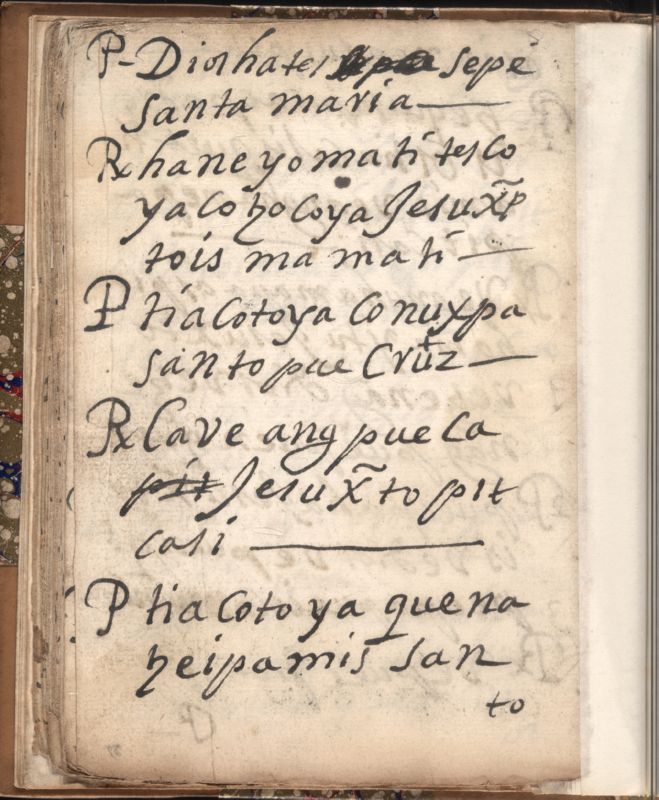 P- Dios hates sepe
santa maria—
Rx hane yo ma ti tesco
ya co ho coya Jesu x̃p
tois ma mati—
P tia cotoya conuxpa
santo pue Cruz—
Rx Cave ang pue ca
pit Jesu x̃to pit
casi —
P tia coto ya quena
heipamis san
to